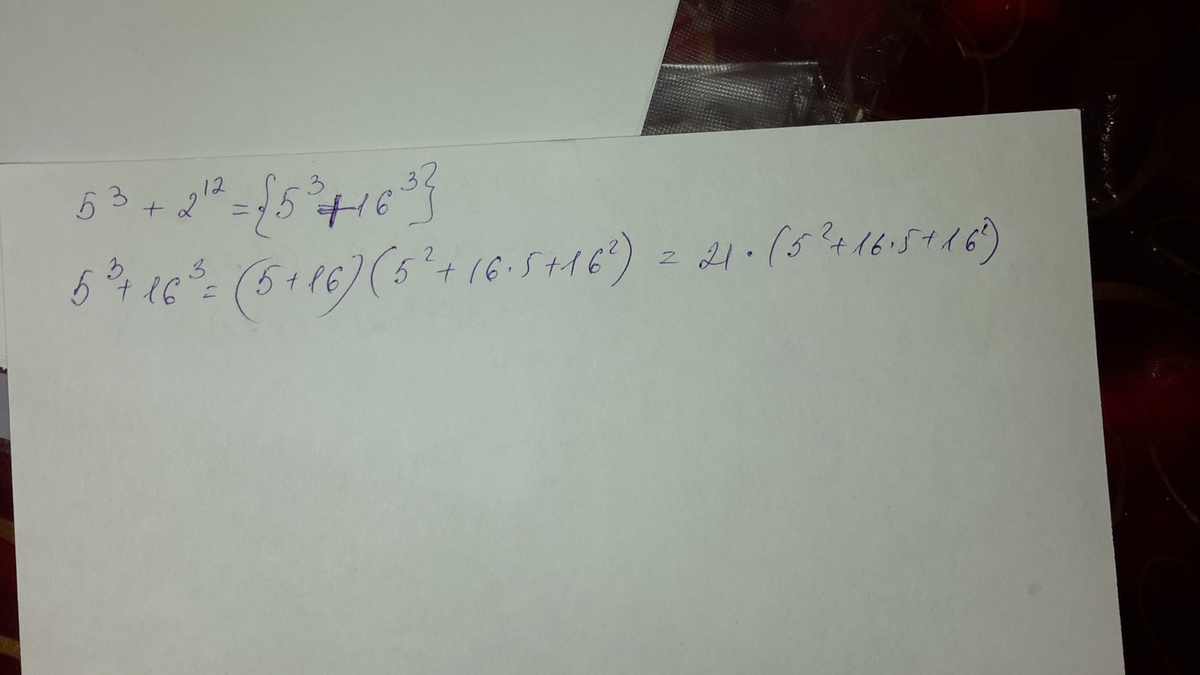 5³ + 2¹² = {5³ + 16³}
5³ + 16³ = (5 + 16)(5² + 16·5 + 16²) = 21·(5² + 16·5 + 16²)